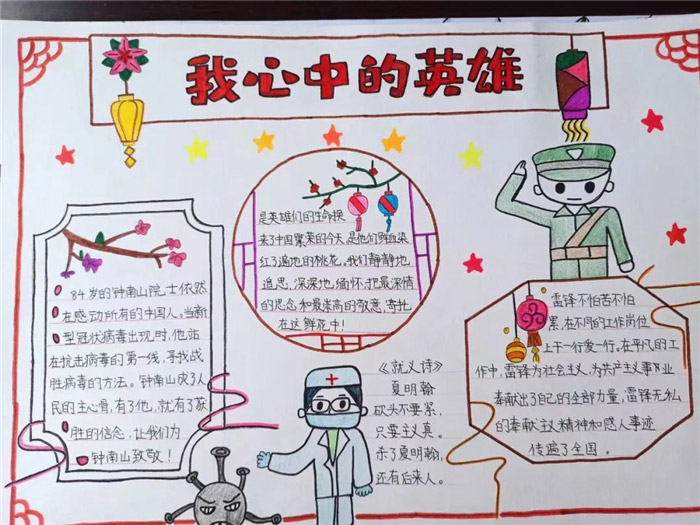 我心中的英雄
84岁的钟南山院士依然
在感动所有的中国人。当新
型冠状病毒出现时,他站
在抗击病毒的第一线,寻找战
胜病毒的方法。钟南山成了人
民的主心骨,有了他,就有了获
胜的信念,让我们为
钟南山致敬!
是英雄们的生命换
来了中国繁荣的今天,是他们鲜血染
红了遍地的桃花。我们静静地
追思,深深地缅怀.把最深情
的思念和最崇高的敬意,寄托
在这鲜花中!
《就义诗》
夏明翰
砍头不要紧,
只要主义真。
杀了夏明翰,
还有后来人。
雷锋不怕苦不怕
累,在不同的工作岗位
上干一行爱一行。在平凡的工
作中,雷锋为社会主义,为共产主义事业
奉献出了自己的全部力量,雷锋无私
的奉献主义精神和感人事迹
传遍了全国。